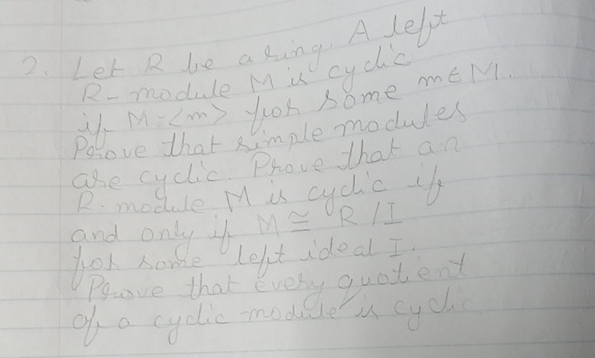 2. Let R be a ring. A left
R-module M is cyclic
if M=<m> for some m∈M.
Prove that simple modules
are cyclic. Prove that an
R-module M is cyclic if
and only if M ≅ R/I
for some left ideal I.
Prove that every quotient
of a cyclic-module is cyclic